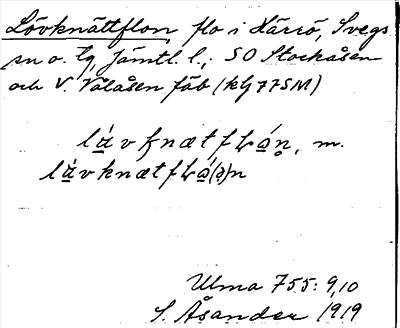 Lövknättflon, flo i Härrö, Svegs
sn o. tg, Jämtl. l.; SO Stockåsen
och V. Vålåsen fäb (kbl 77SM)
lá̠vknætfLá̠n̥, m.
lá̠vknætfLá̠(ə)n
Ulma 755: 9,10
S. Åsander 1919